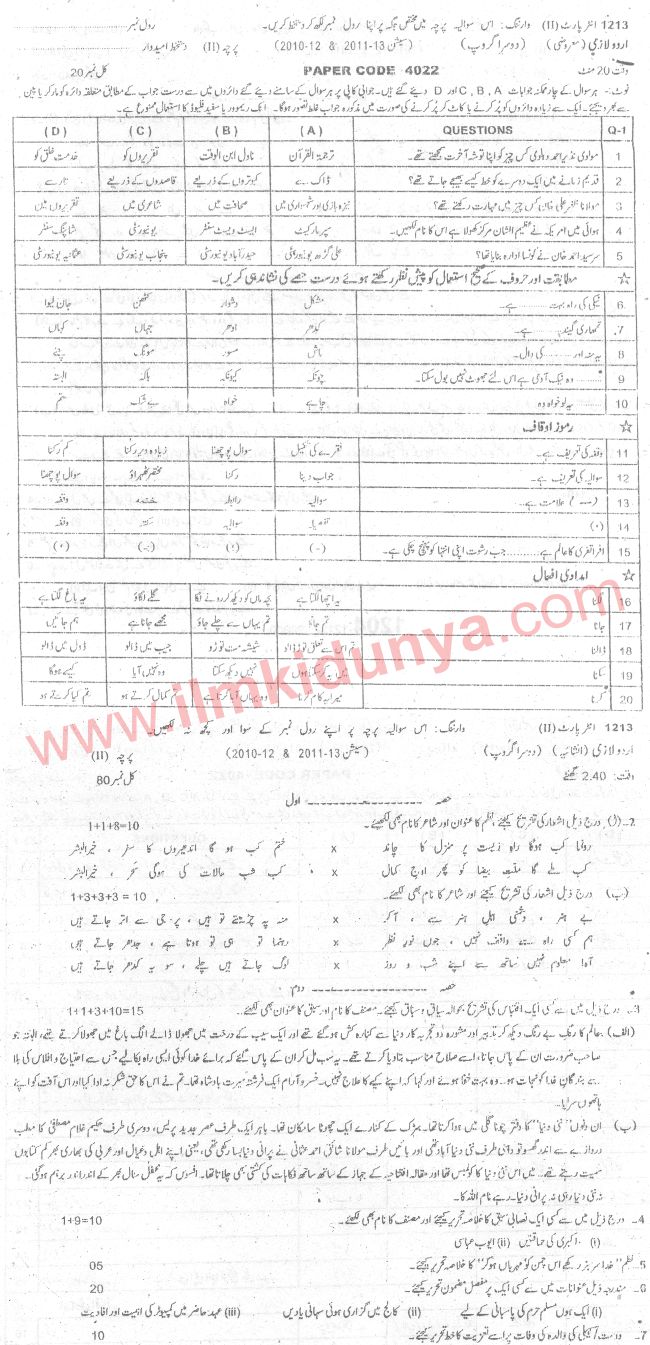 1213 انٹر پارٹ (II) وارننگ: اس سوالیہ پرچہ میں مختص جگہ پر اپنا رول نمبر لکھ کر دستخط کریں۔ رول نمبر
اردو لازمی (معروضی) (دوسرا گروپ) (سیشن 13-2011 & 12-2010) پرچہ (II) دستخط امیدوار
وقت 20 منٹ PAPER CODE 4022 کل نمبر 20
نوٹ:- ہر سوال کے چار ممکنہ جوابات A, B, C اور D دیئے گئے ہیں۔ جوابی کاپی پر ہر سوال کے سامنے دیئے گئے دائروں میں سے درست جواب کے مطابق متعلقہ دائرہ کو مارکر یا پین
سے بھر دیجئے۔ ایک سے زیادہ دائروں کو پُر کرنے یا کاٹ کر پُر کرنے کی صورت میں مذکورہ جواب غلط تصور ہوگا۔ انک ریموور یا سفید فلیوڈ کا استعمال ممنوع ہے۔
Q-1 QUESTIONS (A) (B) (C) (D)
1 مولوی نذیر احمد دہلوی کس چیز کو اپنا توشہ آخرت سمجھتے تھے۔ ترجمۃ القرآن ناول ابن الوقت تقریروں کو خدمت خلق کو
2 قدیم زمانے میں ایک دوسرے کو خط کیسے بھیجے جاتے تھے؟ ڈاک سے کبوتروں کے ذریعے قاصدوں کے ذریعے تار سے
3 مولانا ظفر علی خان کس چیز میں مہارت رکھتے تھے؟ نیزہ بازی اور شہسواری میں صحافت میں شاعری میں تقریروں میں
4 ہوائی میں امریکہ نے عظیم الشان مرکز کھولا ہے اس کا نام لکھیں۔ سپر مارکیٹ ایسٹ ویسٹ سنٹر یونیورسٹی شاپنگ سنٹر
5 سرسید احمد خان نے کونسا ادارہ بنایا تھا؟ علی گڑھ یونیورسٹی حیدرآباد یونیورسٹی پنجاب یونیورسٹی عثمانیہ یونیورسٹی
☆ مطابقت اور حروف کے صحیح استعمال کو پیش نظر رکھتے ہوئے درست جملے کی نشاندہی کریں۔
6 نیکی کی راہ بہت ..... ہے۔ مشکل دشوار کٹھن جان لیوا
7. تمہاری گیند ..... ہے۔ کدھر ادھر جہاں کہاں
8 یہ منہ اور ..... کی دال۔ ماش مسور مونگ چنے
9 ..... وہ نیک آدمی ہے اس لئے جھوٹ نہیں بول سکتا۔ چونکہ کیونکہ بلکہ البتہ
10 ..... یہ لو خواہ وہ چاہے خواہ بے شک تم
☆ رموز اوقاف
11 وقفہ کی تعریف ہے۔ فقرے کی تکمیل سوال پوچھنا زیادہ دیر رکنا کم رکنا
12 سوالیہ کی تعریف ہے۔ جواب دینا رکنا مختصر ٹھہراؤ سوال پوچھنا
13 (---) علامت ہے۔ سوالیہ رابطہ ختمہ وقفہ
14 (،) سوالیہ سکتہ وقفہ
15 افراتفری کا عالم ہے ..... جب رشوت اپنی انتہا کو پہنچ چکی ہے۔ (-) (؛) (:-) (،)
☆ امدادی افعال
16 لگنا یہ اچھا لگتا ہے بچہ ماں کو دیکھ کر رونے لگا گلے لگاؤ یہ باغ لگتا ہے
17 جانا تم جاؤ تم یہاں سے چلے جاؤ مجھے جانا ہے ہم جائیں
18 ڈالنا تم اس سے تعلق توڑ ڈالو شیشہ مت توڑو جیب میں ڈالو ڈول میں ڈالو
19 سکنا میں یہ کر سکتا ہوں نہیں دیکھ سکتا وہ نہیں آیا کیسے ہوگا
20 کرنا میرا یہ کام کرنا وہ یہاں آیا کرتا ہے تم کمال کرتے ہو تم کیا کرتے ہو
www.ilmkidunya.com
1213 انٹر پارٹ (II) وارننگ: اس سوالیہ پرچہ پر اپنے رول نمبر کے سوا اور کچھ نہ لکھیں۔
اردو لازمی (انشائیہ) (دوسرا گروپ) (سیشن 13-2011 & 12-2010) پرچہ (II)
وقت: 2.40 گھنٹے کل نمبر 80
حصہ اول
2- (الف) درج ذیل اشعار کی تشریح کیجئے، نظم کا عنوان اور شاعر کا نام بھی لکھیئے۔ 1+1+8=10
رونما کب ہوگا راہِ زیست پر منزل کا چاند x ختم کب ہو گا اندھیروں کا سفر ، خیرالبشر
کب ملے گا ملتِ بیضا کو پھر اوجِ کمال x کب شبِ حالات کی ہوگی سحر ، خیرالبشر
(ب) درج ذیل اشعار کی تشریح کیجئے اور شاعر کا نام بھی لکھیئے۔ 1+3+3+3 = 10
بے ہنر ، دشمنیِ اہلِ ہنر سے ، آکر x منہ پہ چڑھتے تو ہیں ، پر جی سے اتر جاتے ہیں
ہم کسی راہ سے واقف نہیں ، جوں نورِ نظر x رہنما تو ہی تو ہوتا ہے ، جدھر جاتے ہیں
آہ! معلوم نہیں ساتھ سے اپنے شب و روز x لوگ جاتے ہیں چلے ، سو یہ کدھر جاتے ہیں
حصہ دوم
3- درج ذیل میں سے کسی ایک اقتباس کی تشریح بحوالہ سیاق و سباق کیجئے۔ مصنف کا نام اور سبق کا عنوان بھی لکھیئے۔ 1+1+3+10=15
(الف) عالم کا رنگ بے رنگ دیکھ کر تدبیر اور مشورہ دو تجربہ کار دنیا سے کنارہ کش ہو گئے تھے اور ایک سیب کے درخت میں جھولا ڈالے الگ باغ میں جھولا کرتے تھے، البتہ جو
صاحب ضرورت ان کے پاس جاتا، اسے صلاح مناسب بتا دیا کرتے تھے۔ یہ سب مل کر ان کے پاس گئے کہ برائے خدا کوئی ایسی راہ نکالیے جس سے احتیاج و افلاس کی بلا
سے بندگانِ خدا کو نجات ہو۔ وہ بہت خفا ہوئے اور کہا کہ اپنے کیے کا علاج نہیں۔ خسرو آرام ایک فرشتہ سیرت بادشاہ تھا۔ تم نے اس کا حق شکر نہ ادا کیا اور اس آفت کو اپنے
ہاتھوں سر لیا۔
(ب) ان دنوں "نئی دنیا" کا دفتر چونا گلی میں ہوا کرتا تھا۔ سڑک کے کنارے ایک چھوٹا سا مکان تھا۔ باہر ایک طرف عصر جدید پریس، دوسری طرف حکیم غلام مصطفیٰ کا مطب
دروازے سے اندر گھسو تو دائیں طرف نئی دنیا آباد تھی اور بائیں طرف مولانا شائق احمد عثمانی نے پرانی دنیا بسا رکھی تھی، یعنی اپنے اہل و عیال اور عربی کی بھاری بھر کم کتابوں
سمیت رہتے تھے۔ میں اس نئی دنیا کا کولمبس تھا اور مقالہ افتتاحیہ کے جہاز کے ساتھ ساتھ فکاہات کی کشتی بھی چلاتا تھا۔ افسوس کہ یہ محفل سال بھر کے اندر اندر برہم ہوگئی۔
نہ نئی دنیا رہی نہ پرانی دنیا۔ رہے نام اللہ کا۔
4- درج ذیل میں سے کسی ایک نصابی سبق کا خلاصہ تحریر کیجئے اور مصنف کا نام بھی لکھیئے۔ 1+9=10
(i) اکبری کی حماقتیں (ii) ایوب عباسی
5- نظم "خدا سرسبز رکھے اس چمن کو مہرباں ہو کر" کا خلاصہ تحریر کیجئے۔ 05
6- مندرجہ ذیل عنوانات میں سے کسی ایک پر مفصل مضمون تحریر کیجئے۔ 20
(i) ایک ہوں مسلم حرم کی پاسبانی کے لیے (ii) کالج میں گزاری ہوئی سہانی یادیں (iii) عہد حاضر میں کمپیوٹر کی اہمیت اور افادیت
7- دوست/سہیلی کی والدہ کی وفات پر اسے تعزیت کا خط تحریر کیجئے۔ 10